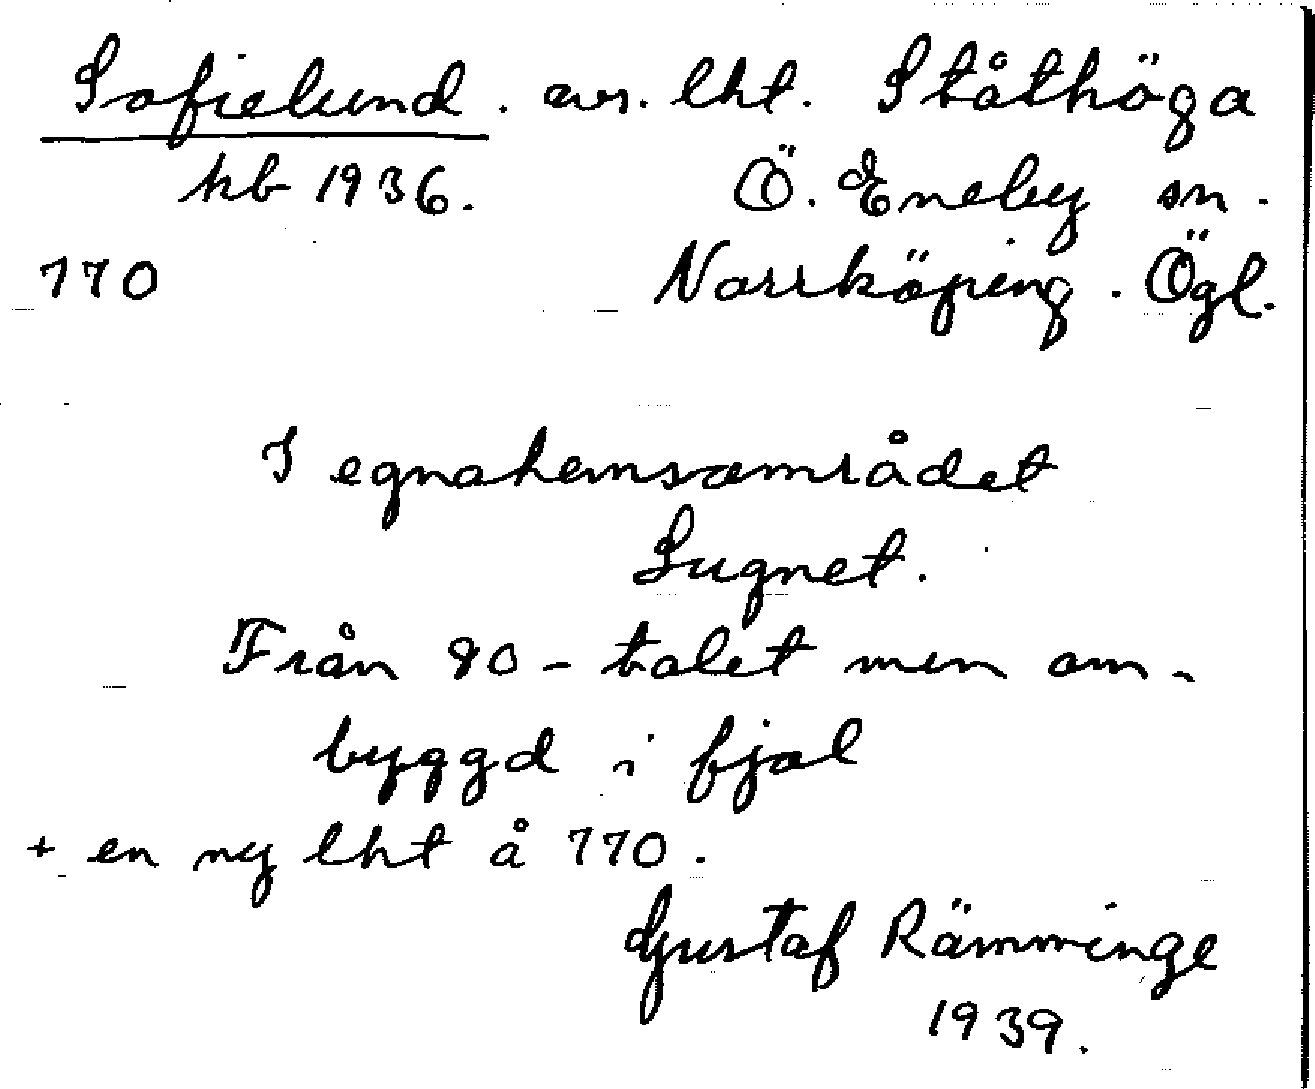 Sofielund. avs. lht. Ståthöga
kb 1936. Ö. Eneby sn.
770 Norrköping. Ögl.
I egnahemsområdet
Lugnet.
Från 90-talet men om-
byggd i fjol
+ en ny lht å 770.
Gustaf Rämminge
1939.